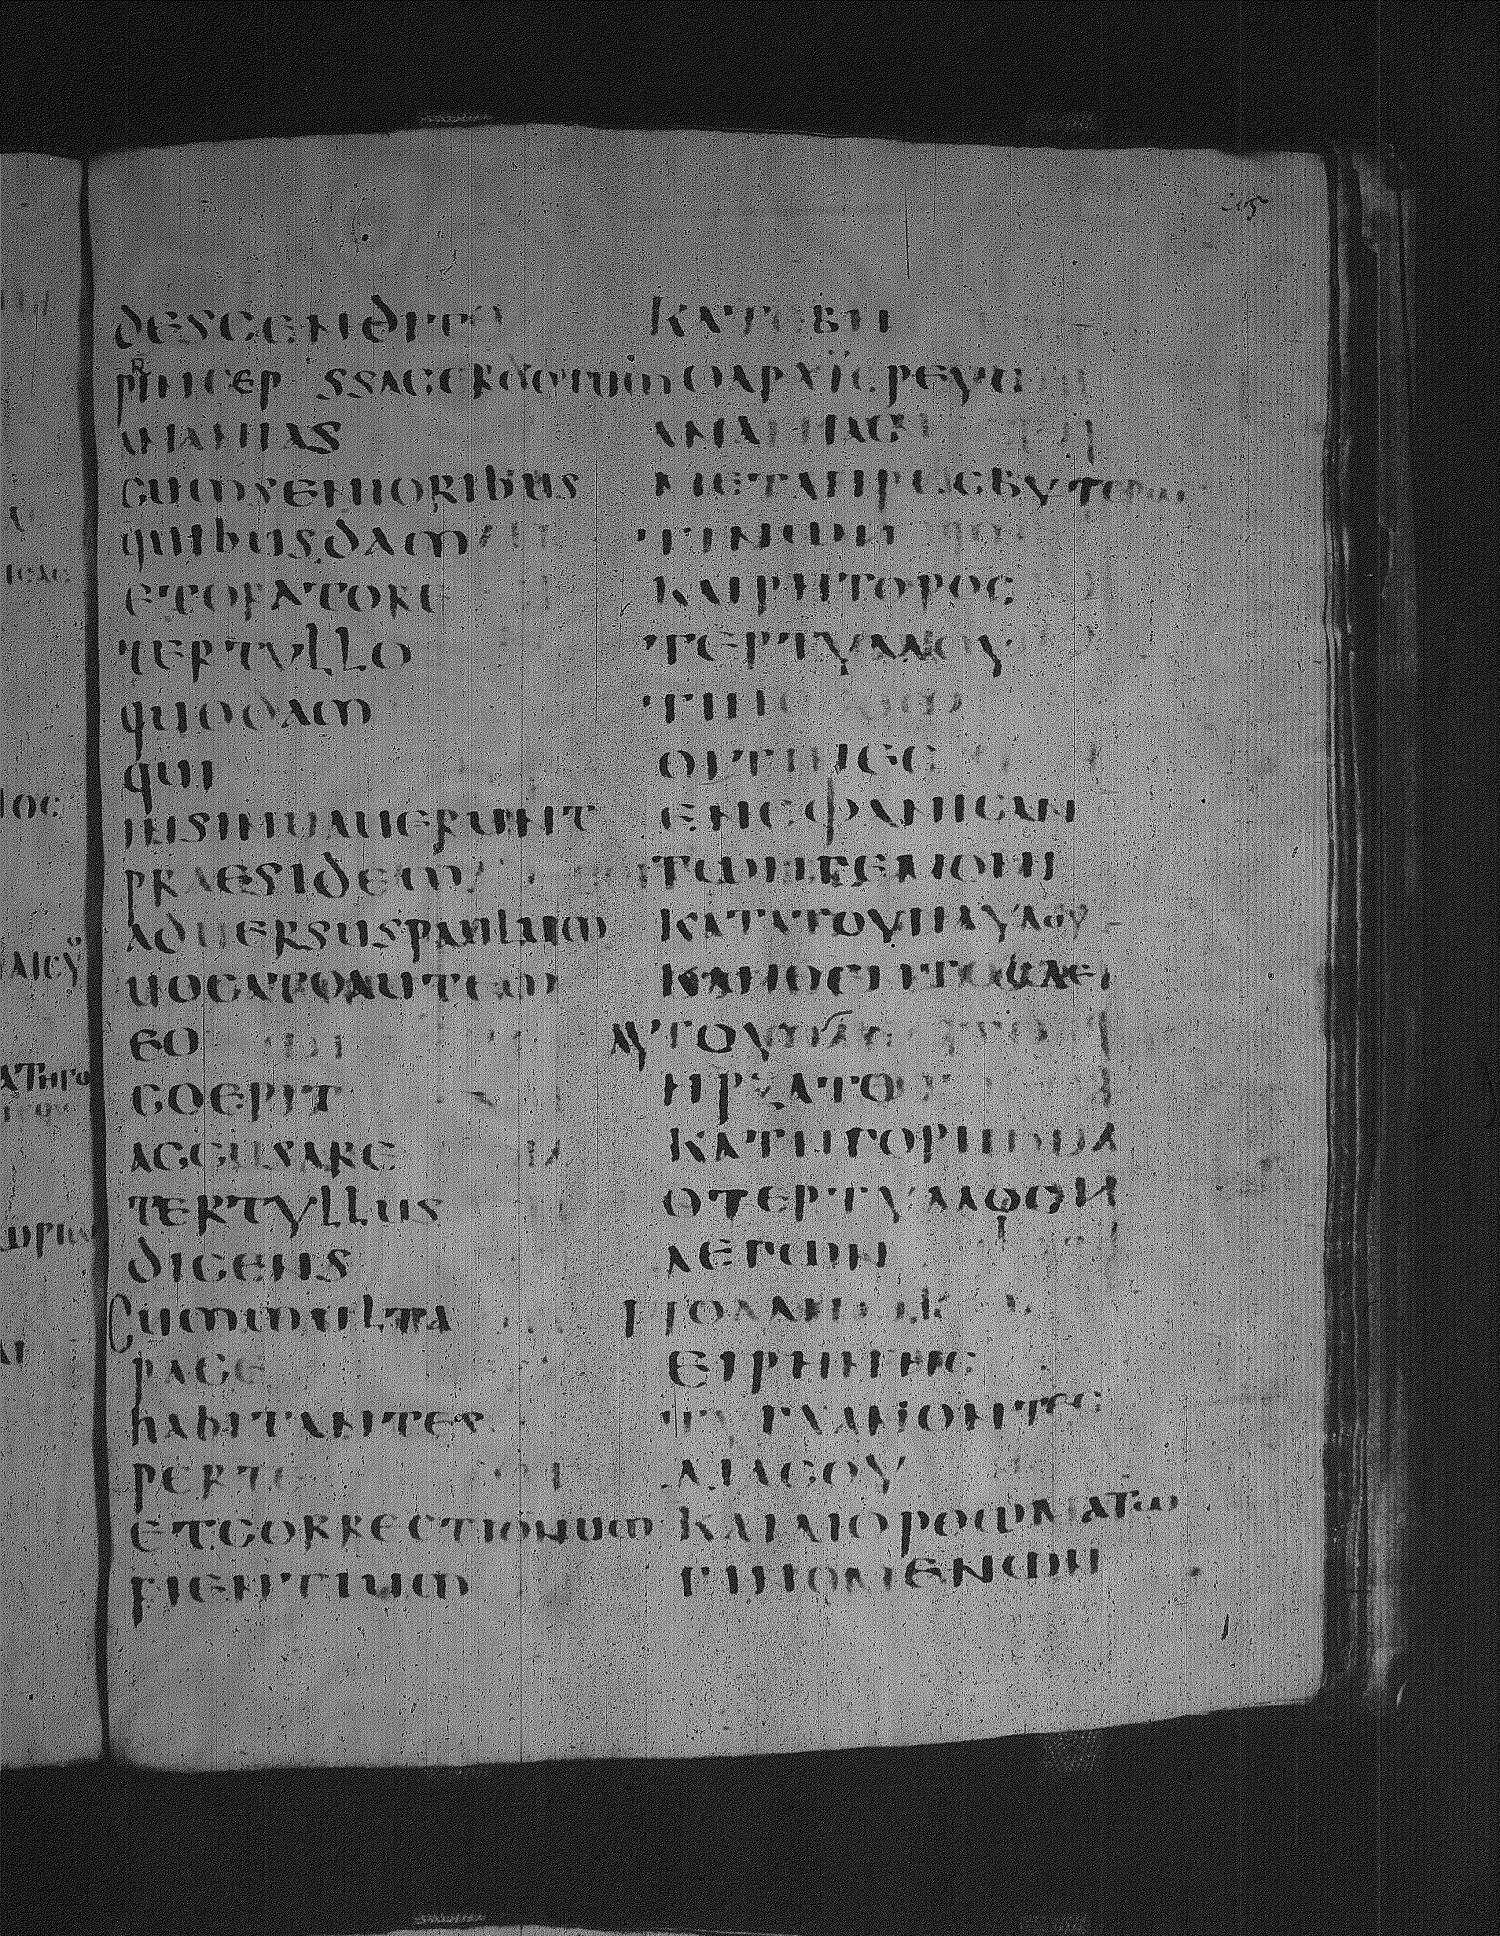 descendit
princep ssacerdotum
ananias
cumsenioribus
quibusdam
etoratore
tertyllo
quodam
qui
insinuauerunt
praesidem
aduersuspaulum
uocatoautem
eo
coepit
accusare
tertyllus
dicens
Cummulta
pace
habitantes
perte
etcorrectionum
fientium
ΚΑΤΕΒΗ
ΟΑΡΧΪΕΡΕΥϹ
ΑΝΑΝΙΑϹ
ΜΕΤΑΠΡΕϹΒΥΤΕΡΩΝ
ΤΙΝΩΝ
ΚΑΙΡΗΤΟΡΟϹ
ΤΕΡΤΥΛΛΟΥ
ΤΙΝΟϹ
ΟΙΤΙΝΕϹ
ΕΝΕΦΑΝΙϹΑΝ
ΤΩΗΓΕΜΟΝΙ
ΚΑΤΑΤΟΥΠΑΥΛΟΥ
ΚΛΗΘΕΝΤΟϹΔΕ
ΑΥΤΟΥ
ΗΡΞΑΤΟ
ΚΑΤΗΓΟΡΙΝ
ΟΤΕΡΤΥΛΛΟϹ
ΛΕΓΩΝ
ΠΟΛΛΗϹ
ΕΙΡΗΝΗϹ
ΤΥΓΧΑΝΟΝΤΕϹ
ΔΙΑϹΟΥ
ΚΑΙΔΙΟΡΘΩΜΑΤΩ
ΓΙΝΟΜΕΝΩΝ